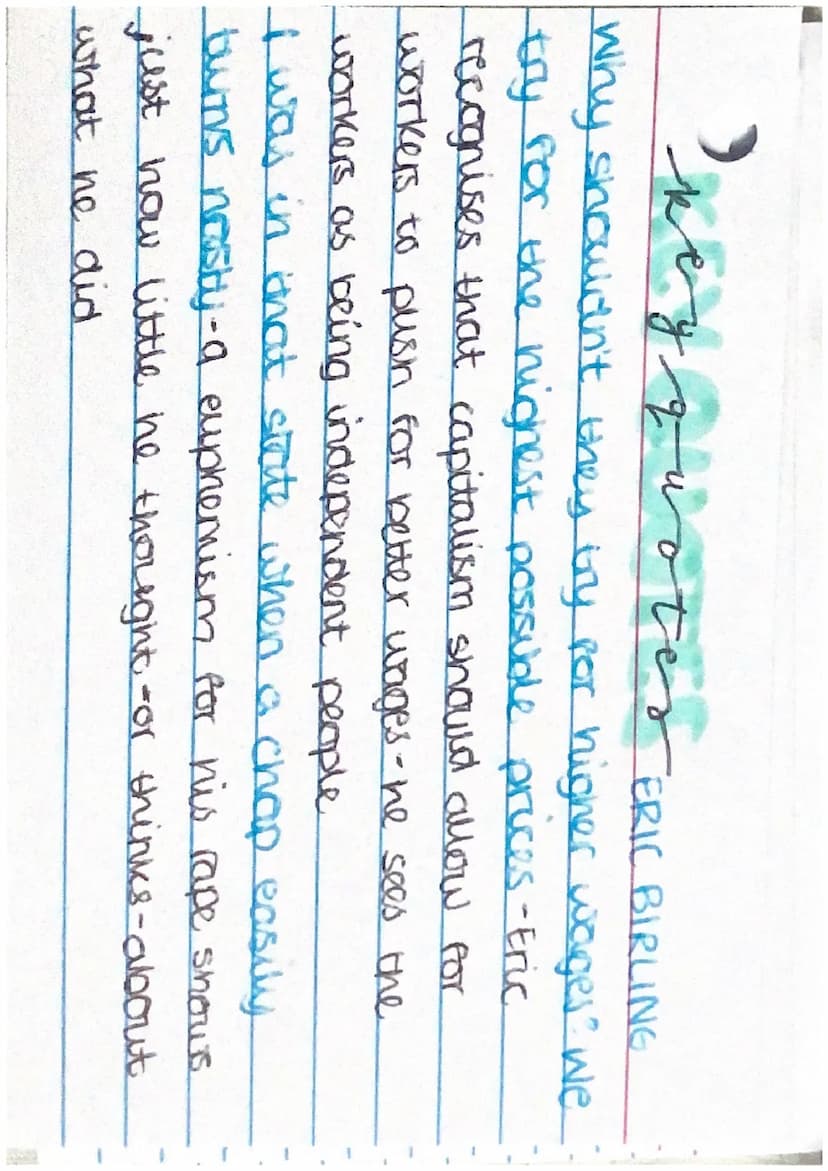 KEY QUOTES
key quotes ERIC BIRLING
Why shouldn't they try for higher wages? We
try for the highest possible prices - Eric
recognises that capitalism should allow for
workers to push for better wages - he sees the
workers as being independent people
I was in that state when a chap easily
turns nasty - a euphemism for his rape shows
just how little he thought - or thinks - about
what he did